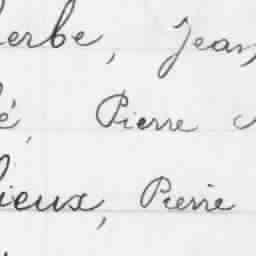 erbe, Jean
é, Pierre
ieux, Pierre